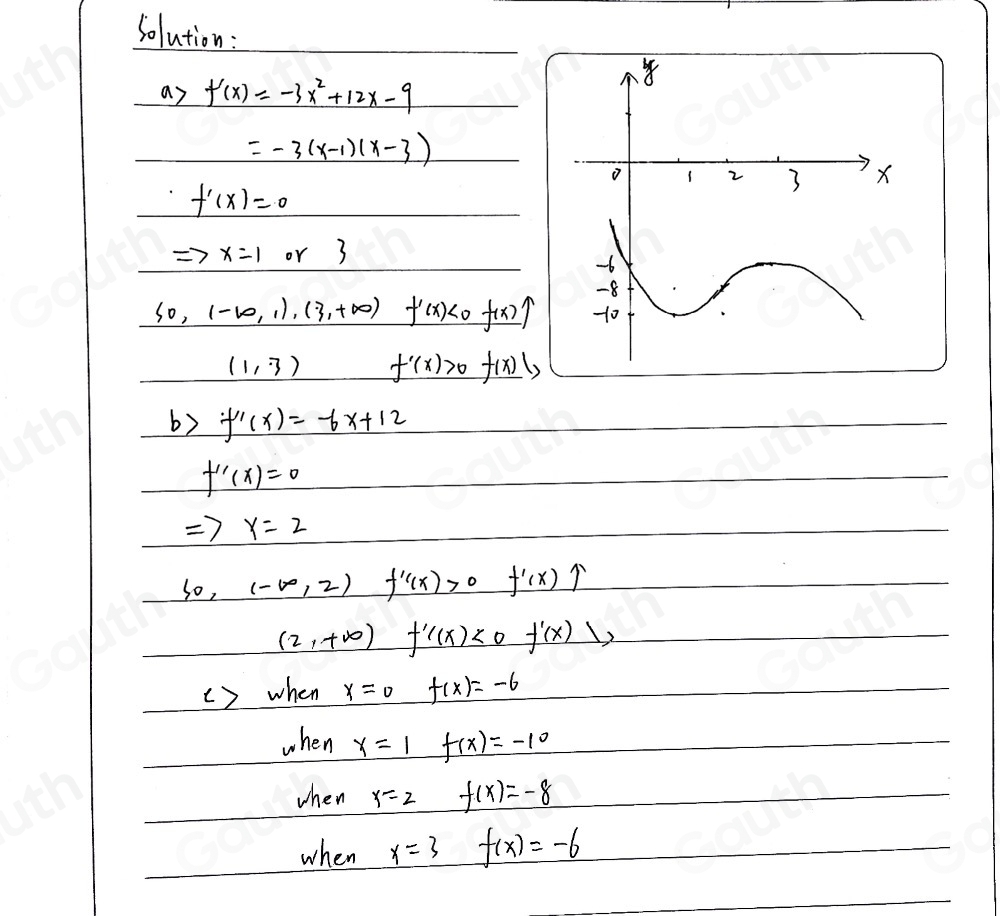 Solution:
a> f'(x) = -3x²+12x-9
= -3(x-1)(x-3)
f'(x)=0
=> x=1 or 3
so, (-∞,1),(3,+∞) f'(x)<0 f(x)↑
(1,3) f'(x)>0 f(x)↘
b> f''(x)= -6x+12
f''(x)=0
=> x=2
so, (-∞,2) f''(x)>0 f'(x)↑
(2,+∞) f''(x)<0 f'(x)↘
c> when x=0 f(x)=-6
when x=1 f(x)=-10
when x=2 f(x)=-8
when x=3 f(x)=-6
y
0 1 2 3 x
-6
-8
-10
Gauth